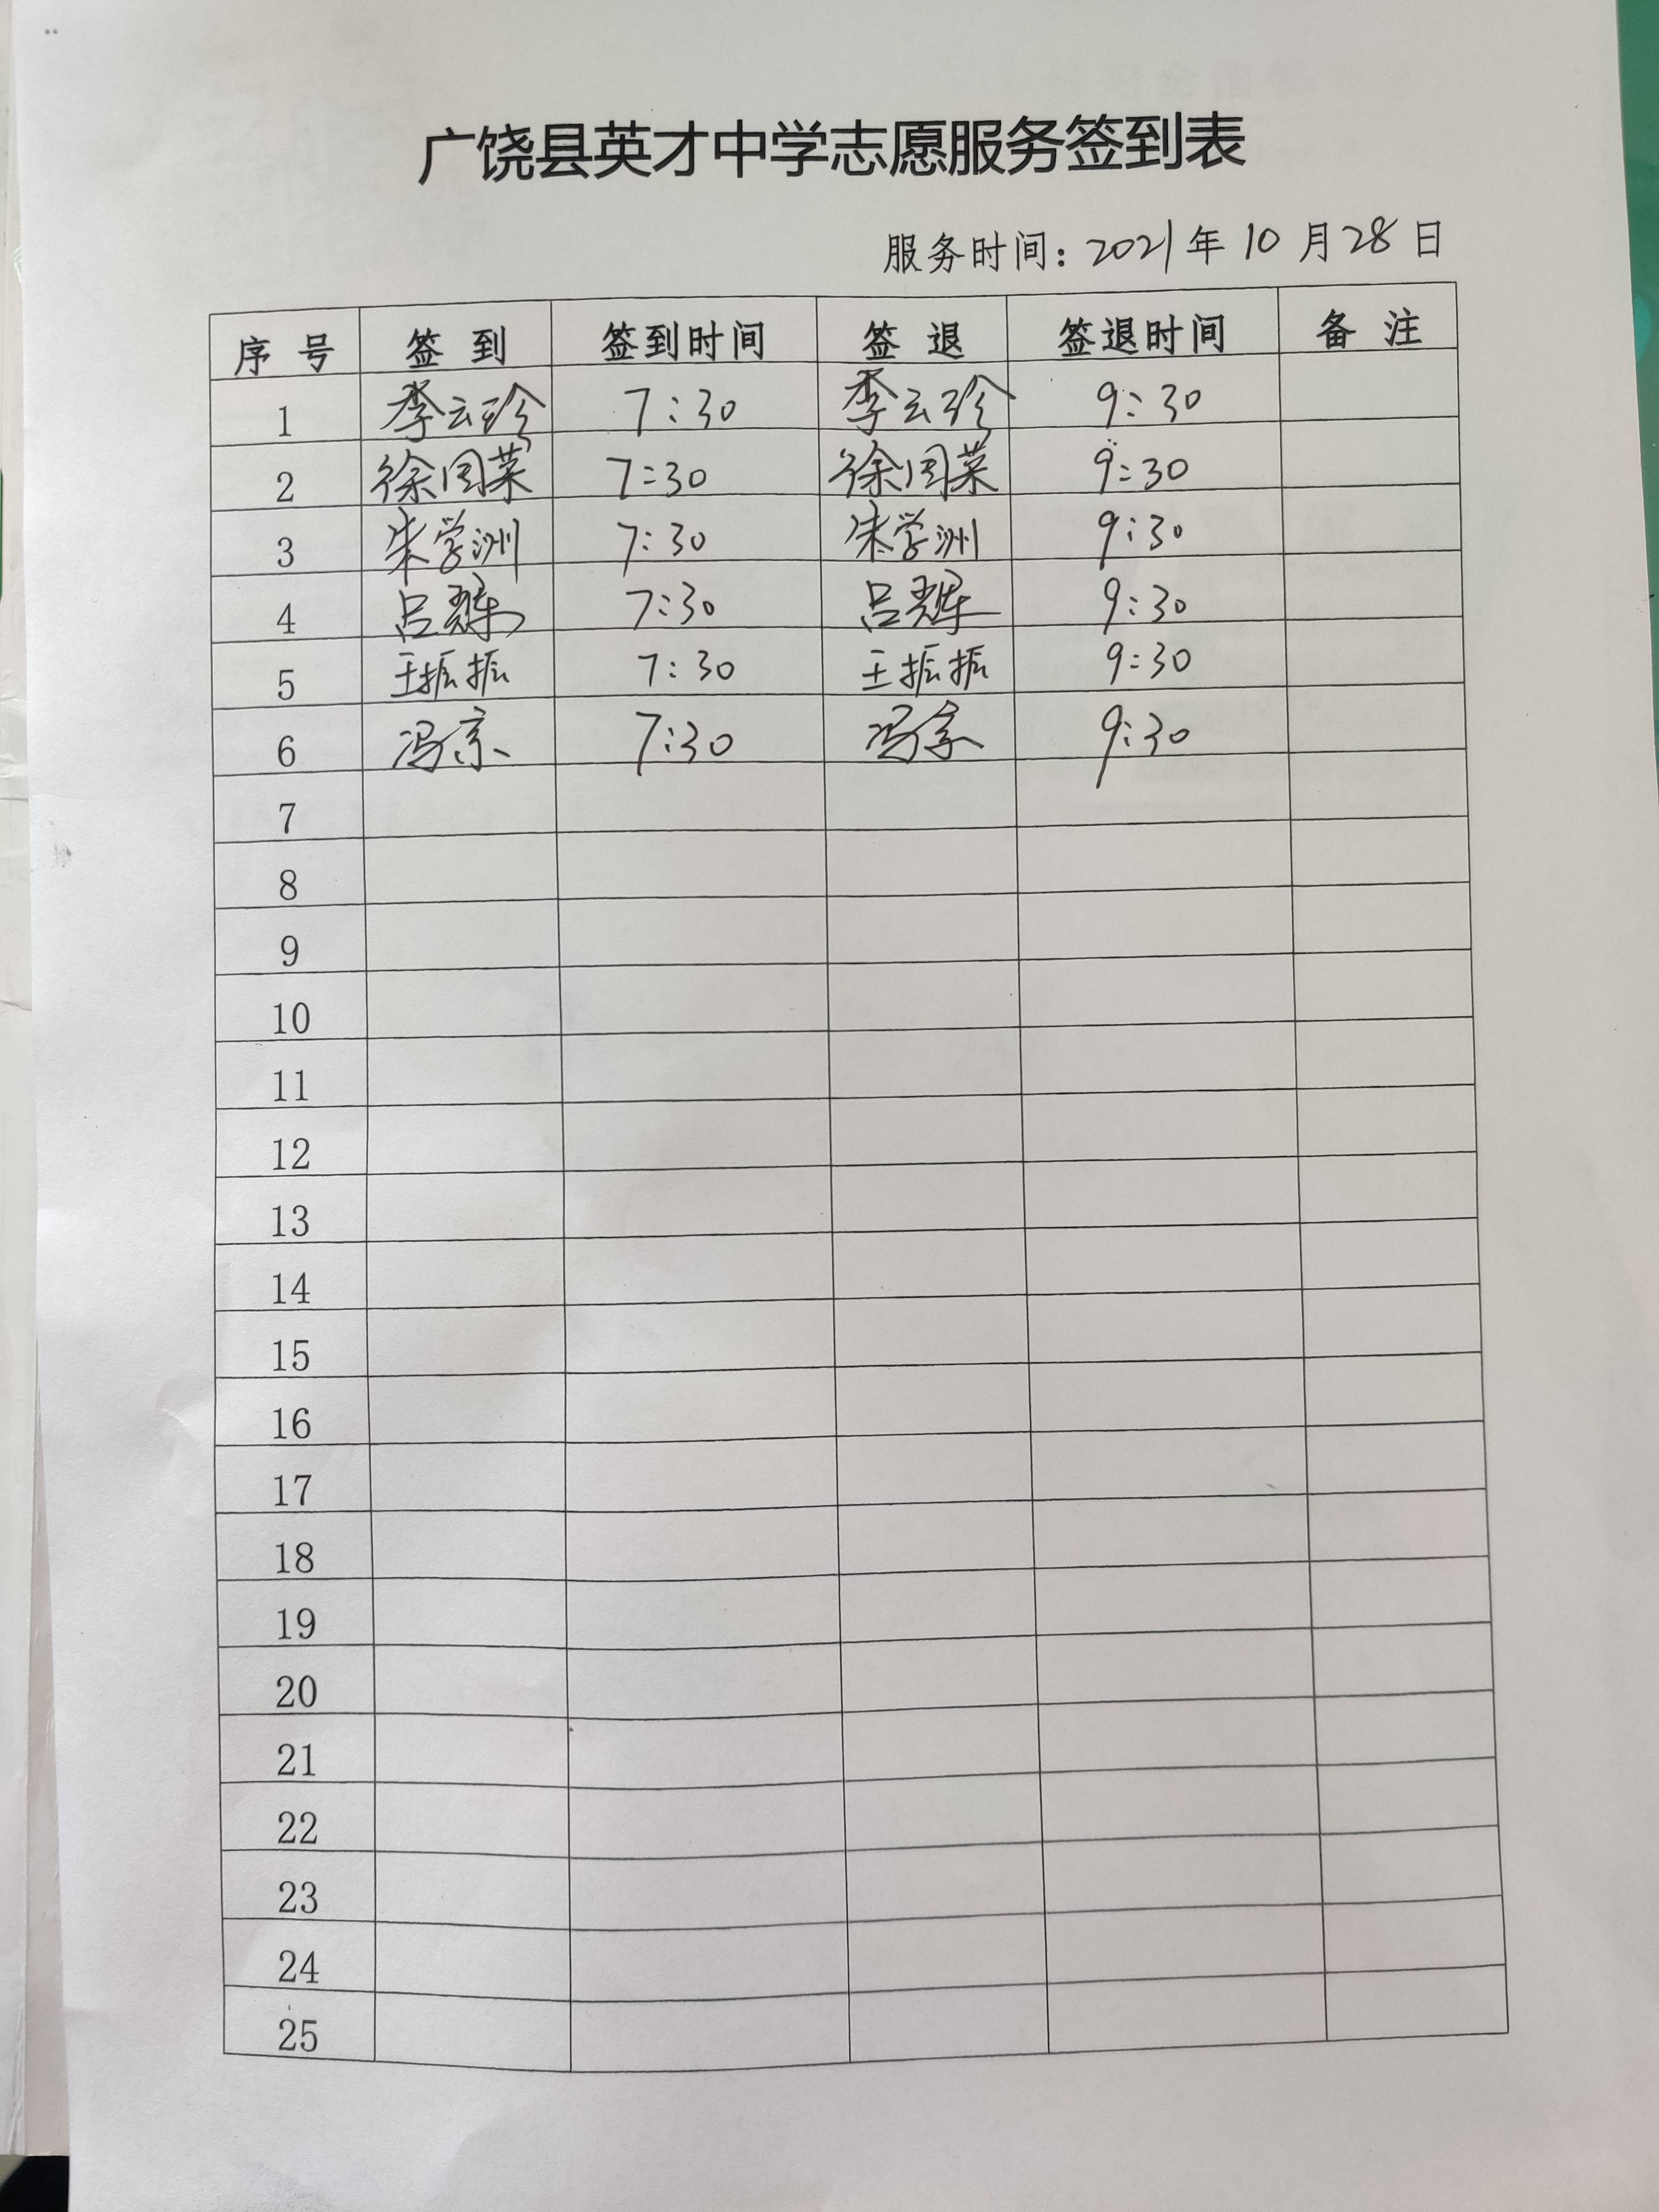 广饶县英才中学志愿服务签到表
服务时间：2021年10月28日
序号 签到 签到时间 签退 签退时间 备注
1 李云珍 7:30 李云珍 9:30
2 徐国菜 7:30 徐国菜 9:30
3 朱学洲 7:30 朱学洲 9:30
4 吕翠 7:30 吕翠 9:30
5 王振振 7:30 王振振 9:30
6 冯京 7:30 冯京 9:30
7
8
9
10
11
12
13
14
15
16
17
18
19
20
21
22
23
24
25